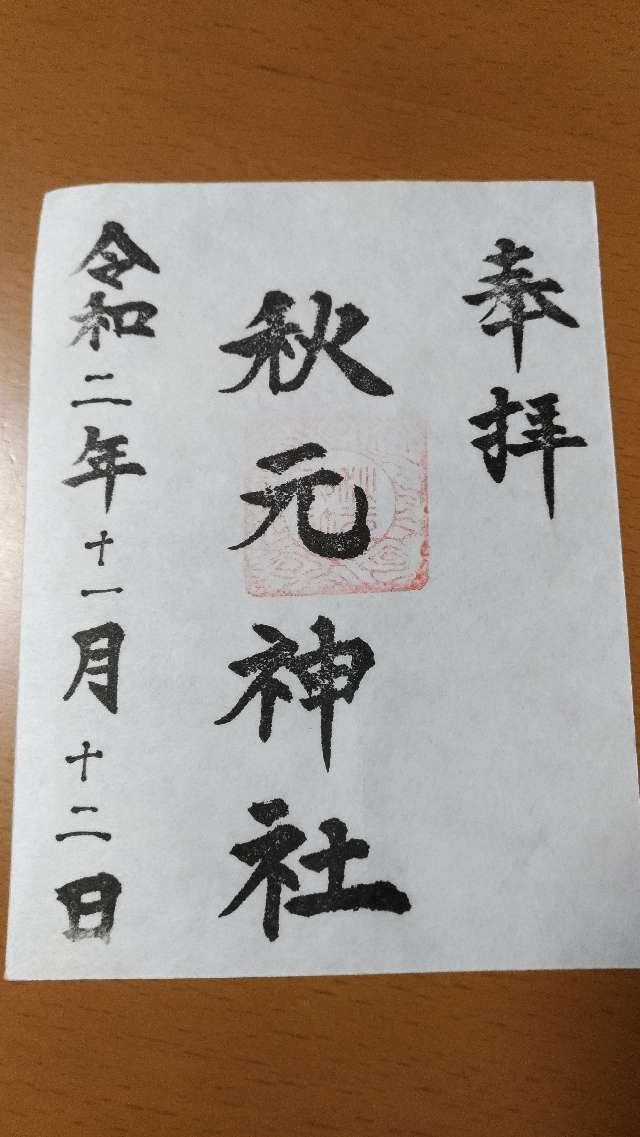 奉拝
秋元神社
令和二年十一月十二日